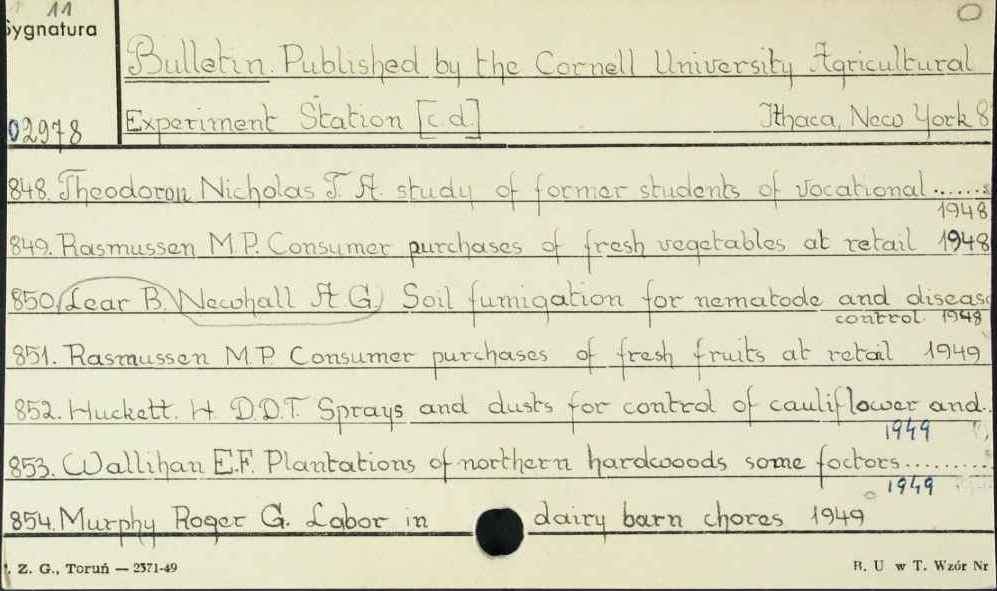 11 O
Sygnatura
Bulletin. Published by the Cornell University Agricultural
02978 Experiment Station [c.d.] Ithaca, New York 8
848. Theodoron Nicholas T. A. study of former students of vocational......
1948
849. Rasmussen M.P. Consumer purchases of fresh vegetables at retail 1948
850. (Lear B. Newhall A G.) Soil fumigation for nematode and diseas
control. 1948
851. Rasmussen M P Consumer purchases of fresh fruits at retail 1949
852. Huckett. H D.D.T. Sprays and dusts for control of cauliflower and..
1949
853. Wallihan E.F. Plantations of northern hardwoods some foctors.........
1949
854. Murphy Roger G. Labor in dairy barn chores 1949
. Z. G., Toruń — 2371-49 B. U w T. Wzór Nr